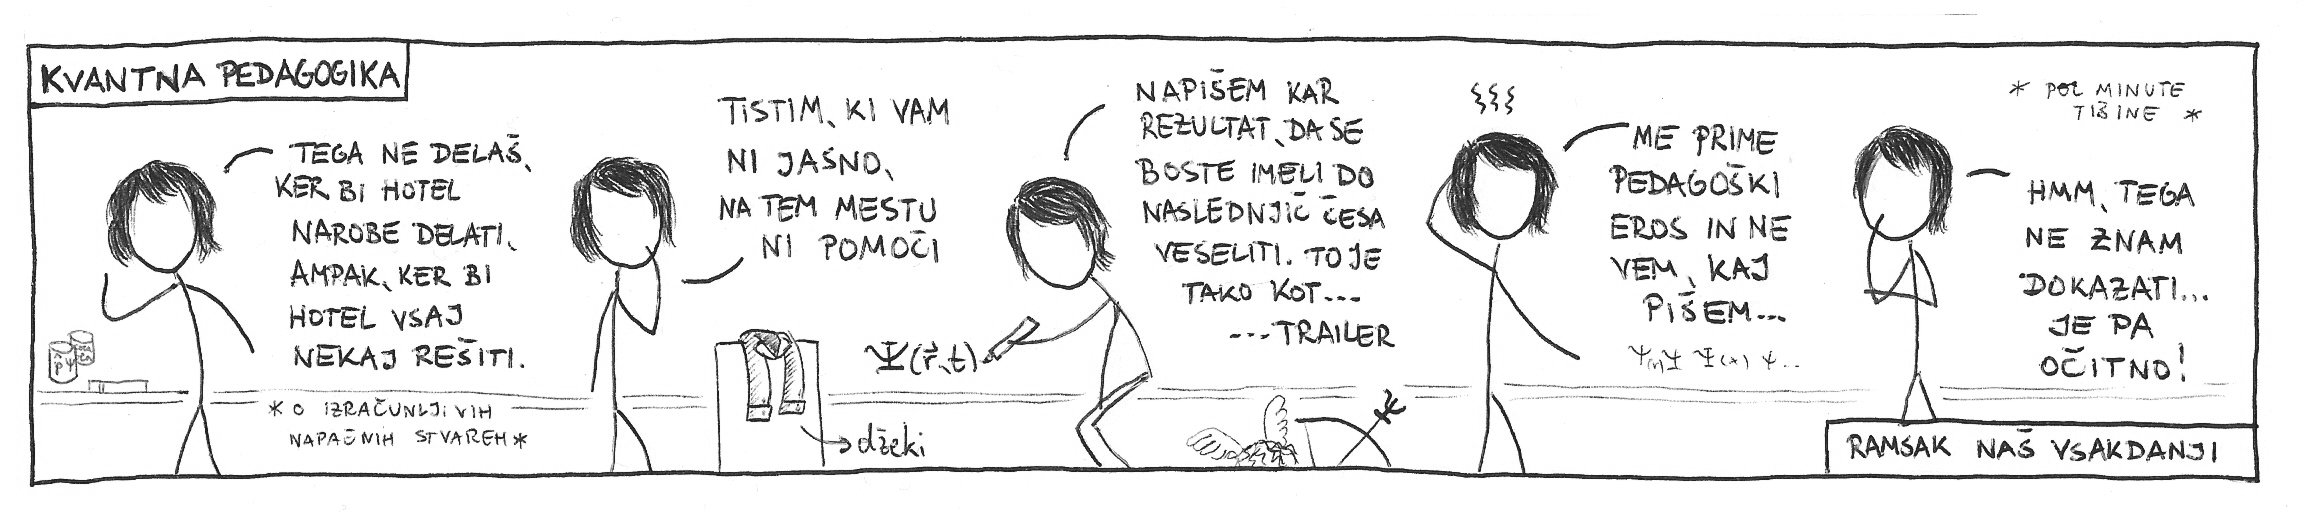 KVANTNA PEDAGOGIKA
TEGA NE DELAŠ,
KER BI HOTEL
NAROBE DELATI,
AMPAK, KER BI
HOTEL VSAJ
NEKAJ REŠITI.
* O IZRAČUNLJIVIH
NAPAČNIH STVAREH *
TISTIM, KI VAM
NI JASNO,
NA TEM MESTU
NI POMOČI
džeki
Ψ(r⃗,t)
NAPIŠEM KAR
REZULTAT, DA SE
BOSTE IMELI DO
NASLEDNJIČ ČESA
VESELITI. TO JE
TAKO KOT...
...TRAILER
ME PRIME
PEDAGOŠKI
EROS IN NE
VEM, KAJ
PIŠEM...
* POL MINUTE
TIŠINE *
HMM, TEGA
NE ZNAM
DOKAZATI...
JE PA
OČITNO!
RAMSAK NAŠ VSAKDANJI